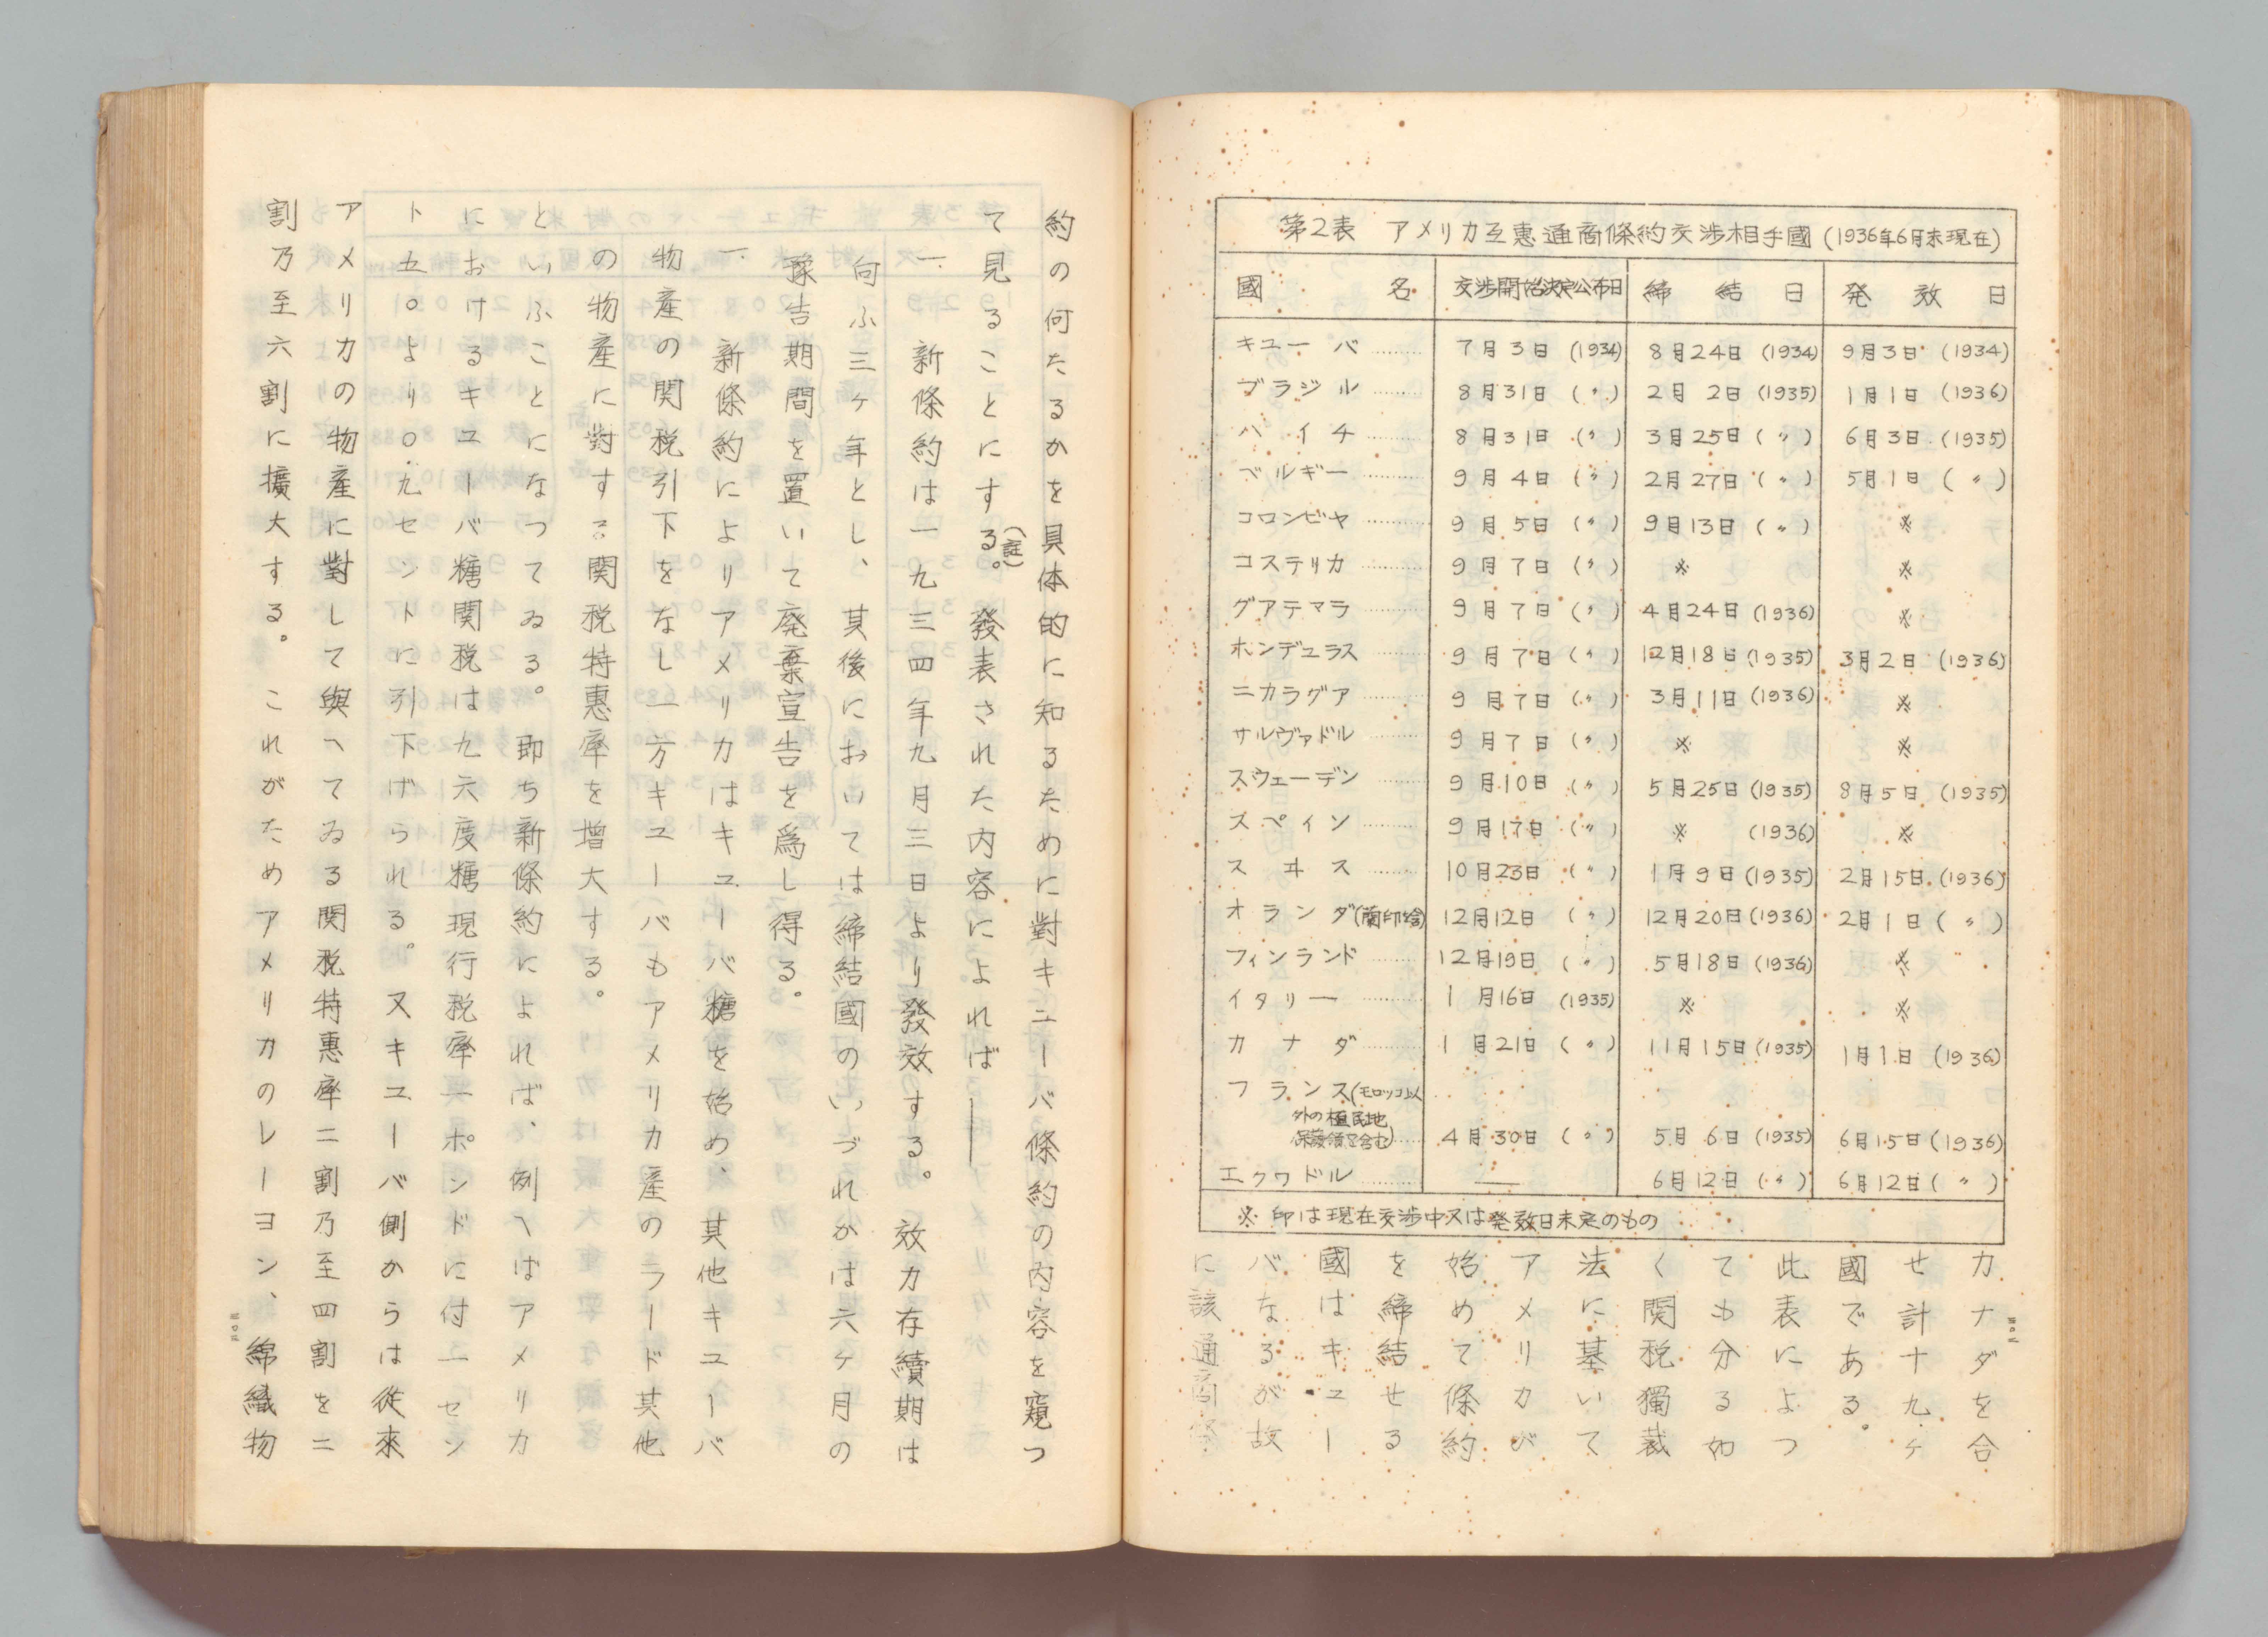 第2表 アメリカ互惠通商條約交渉相手國(1936年6月末現在)
國名 交渉開始決定公布日 締結日 発效日
キューバ……… 7月3日(1934) 8月24日(1934) 9月3日(1934)
ブラジル……… 8月31日(〃) 2月2日(1935) 1月1日(1936)
ハイチ……… 8月31日(〃) 3月25日(〃) 6月3日(1935)
ベルギー……… 9月4日(〃) 2月27日(〃) 5月1日(〃)
コロンビヤ……… 9月5日(〃) 9月13日(〃) ※
コステリカ……… 9月7日(〃) ※ ※
グアテマラ……… 9月7日(〃) 4月24日(1936) ※
ホンデュラス……… 9月7日(〃) 12月18日(1935) 3月2日(1936)
ニカラグア……… 9月7日(〃) 3月11日(1936) ※
サルヴァドル……… 9月7日(〃) ※ ※
スウェーデン……… 9月10日(〃) 5月25日(1935) 8月5日(1935)
スペイン……… 9月17日(〃) ※(1936) ※
スヰス……… 10月23日(〃) 1月9日(1935) 2月15日(1936)
オランダ(蘭印含) 12月12日(〃) 12月20日(1936) 2月1日(〃)
フィンランド……… 12月19日(〃) 5月18日(1936) ※
イタリー……… 1月16日(1935) ※ ※
カナダ……… 1月21日(〃) 11月15日(1935) 1月1日(1936)
フランス(モロッコ以
外の植民地
保護領を含む)…… 4月30日(〃) 5月6日(1935) 6月15日(1936)
エクワドル……… ― 6月12日(〃) 6月12日(〃)
※印は現在交渉中又は発效日未定のもの
カナダを合
せ計十九ヶ
國である。
此表によつ
ても分る如
く関税獨裁
法に基いて
アメリカが
始めて條約
を締結せる
國はキュー
バなるが故
に該通商條
約の何たるかを具体的に知るために對キューバ條約の内容を窺つ
て見ることにする。(註)發表された内容によれば――
一.新條約は一九三四年九月三日より發效する。效力存續期は
向ふ三ヶ年とし、其後においては締結國のいづれかは六ヶ月の
豫告期間を置いて廃棄宣告を爲し得る。
一.新條約によりアメリカはキューバ糖を始め、其他キューバ
物産の関税引下をなし一方キューバもアメリカ産のラード其他
の物産に對する関税特惠率を増大する。
といふことになつてゐる。即ち新條約によれば、例へばアメリカ
におけるキューバ糖関税は九六度糖現行税率一ポンドに付一セン
ト五〇より〇.九セントに引下げられる。又キューバ側からは従來
アメリカの物産に對して與へてゐる関税特惠率二割乃至四割を二
割乃至六割に擴大する。これがためアメリカのレーヨン、綿織物